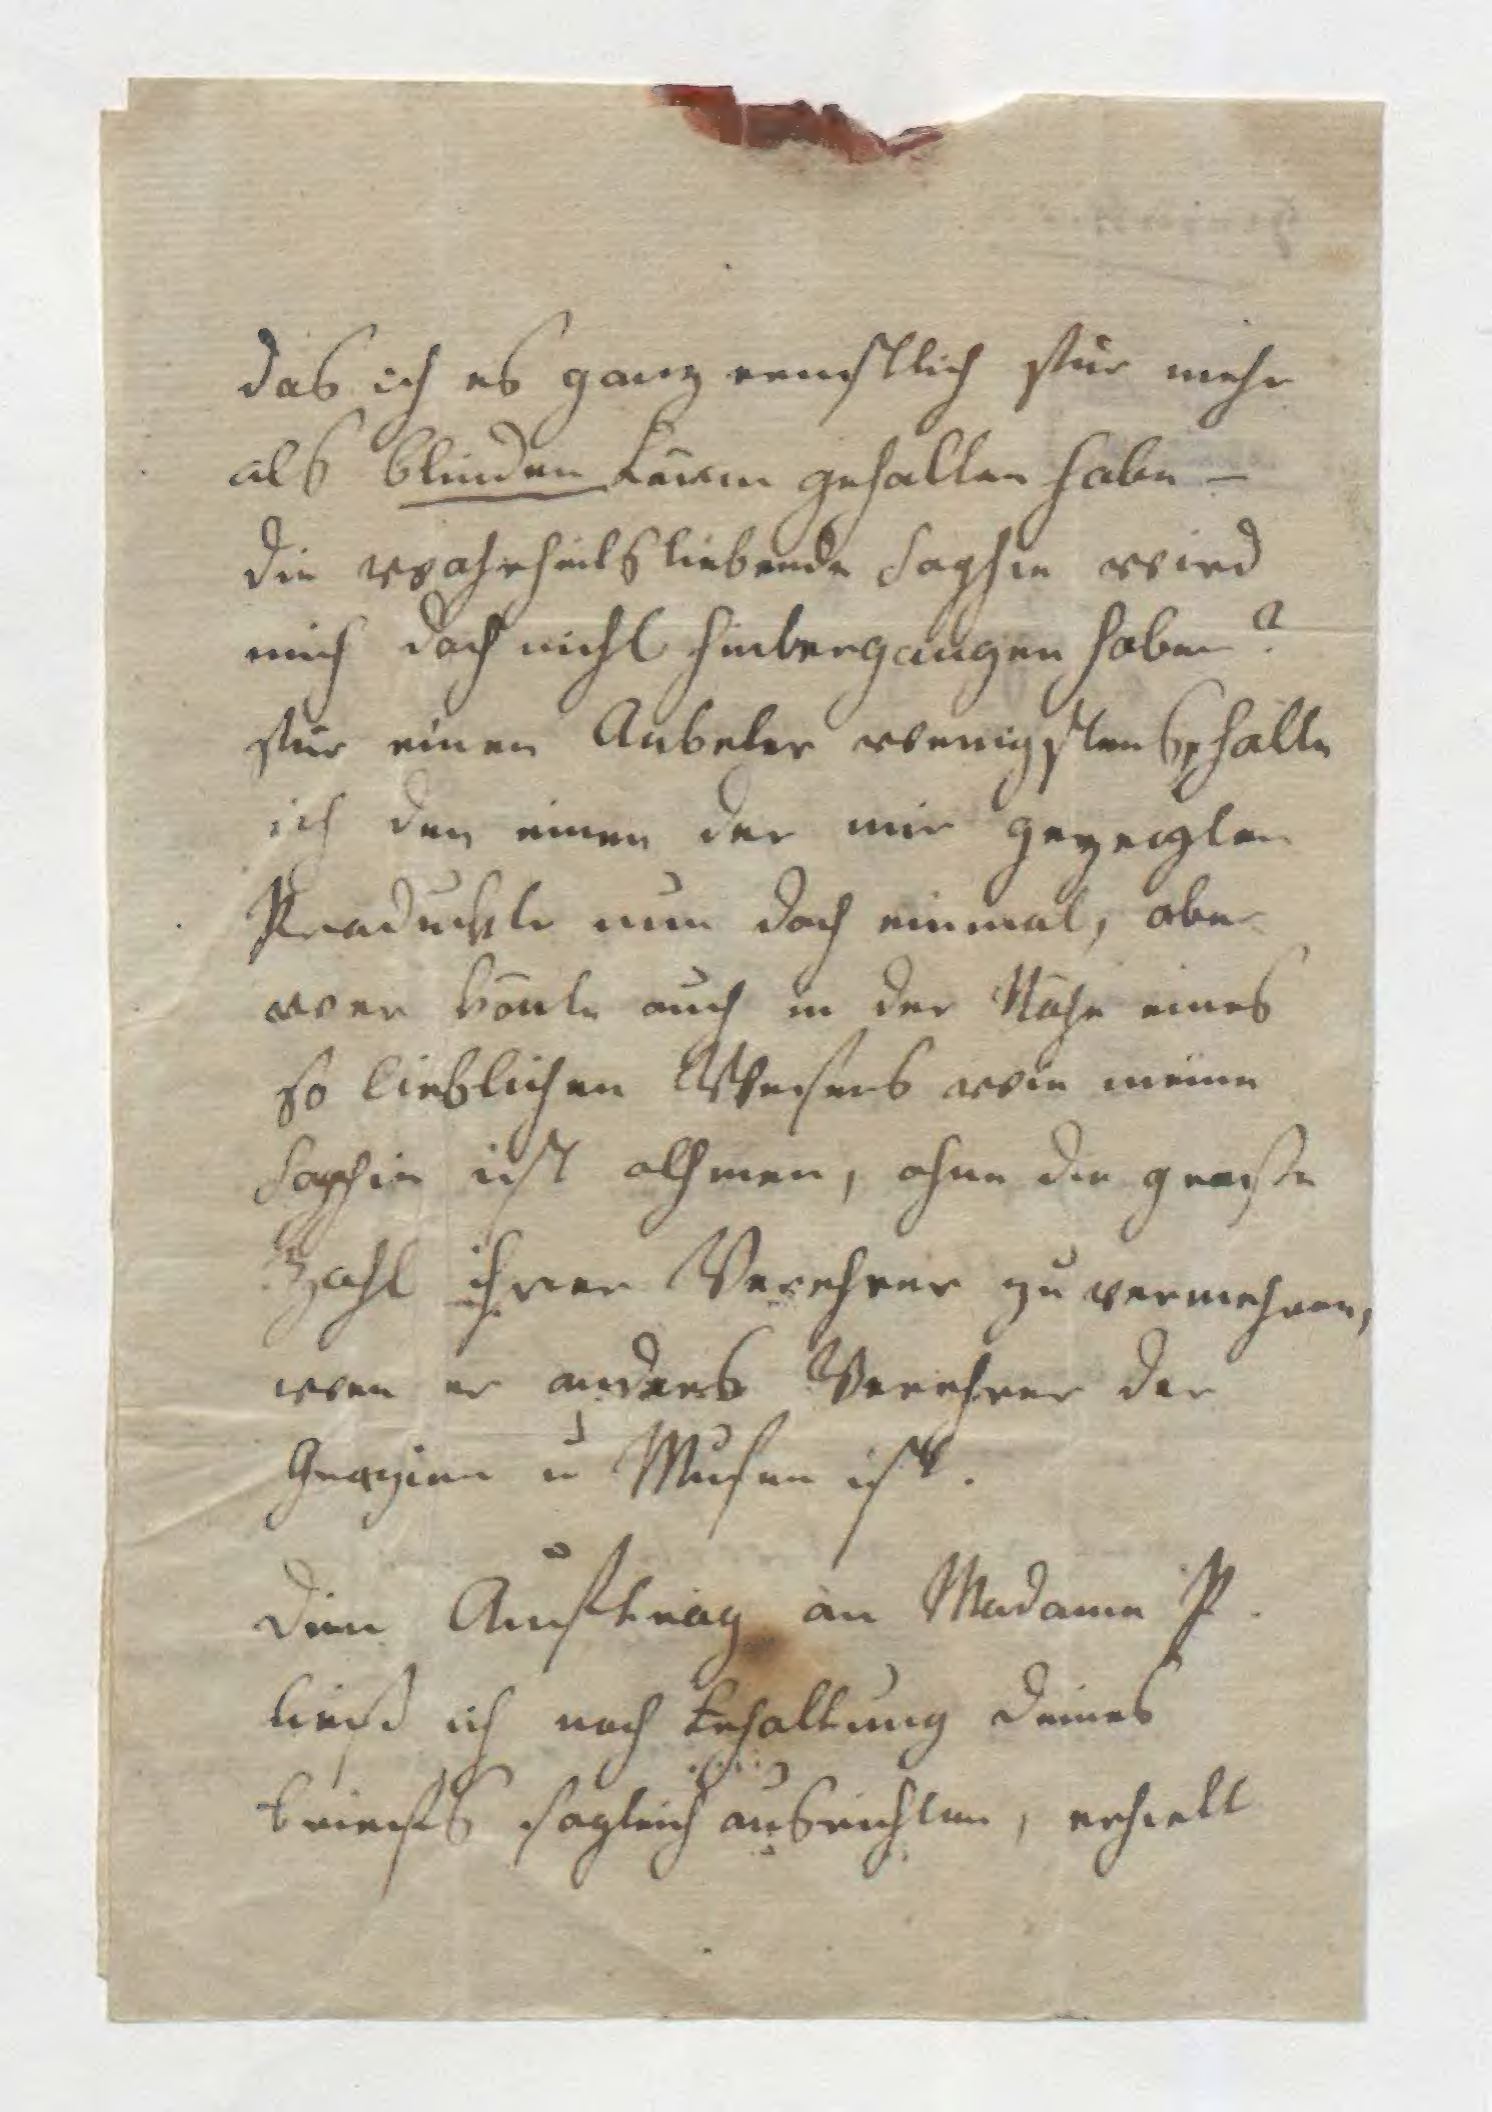 das ich es ganz ernstlich für mehr
als blinden Lärm gehalten habe –
die wahrheitsliebende Sophie wird
mich doch nicht hintergangen haben?
für einen Anbeter wenigstens, halte
ich den einen der mir gezeigten
Produckte nun doch einmal, aber
wer könte auch in der Nähe eines
so lieblichen Wesens wie meine
Sophie ist athmen, ohne die große
Zahl ihrer Verehrer zu vermehren,
wen er anders Verehrer der
Grazien u Musen ist.
Dein Auftrag an Madame P.
ließ ich nach Erhaltung deines
Briefs sogleich ausrichten, erhielt